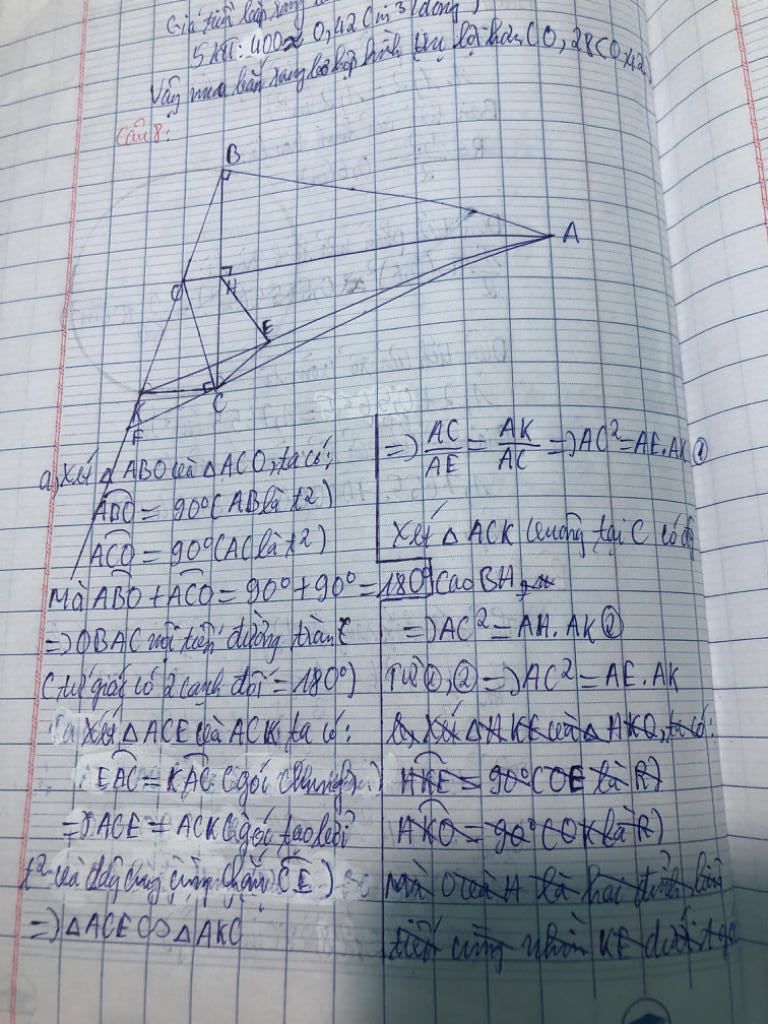 Giá tiền
5 400 ≈ 0,42 (m³/đồng)
Vậy mua hơn (0,28<0,42
Câu 8:
B
A
O
H
E
K
C
F
a, Xét △ ABO và △ ACO, ta có:
ABO = 90° (AB là t²)
ACO = 90° (AC là t²)
Mà ABO + ACO = 90° + 90° = 180°
=> OBAC nội tiếp đường tròn
(tứ giác có 2 cạnh đối = 180°)
Xét △ ACE và ACK ta có:
EAC = KAC (góc chung)
=> ACE = ACK (góc tạo bởi
t² và dây cùng chắn CE)
=> △ACE ∽ △AKC
=> AC/AE = AK/AC => AC² = AE.AK ①
Xét △ ACK vuông tại C có đg
cao BH
=> AC² = AH.AK ②
Từ ①, ② => AC² = AE.AK
Xét △ HKE và △ HKO, ta có:
HKE = 90° (OE là R)
HKO = 90° (OK là R)
Mà O và H là hai đỉnh liên
tiếp cùng nhìn KE dưới 1 góc